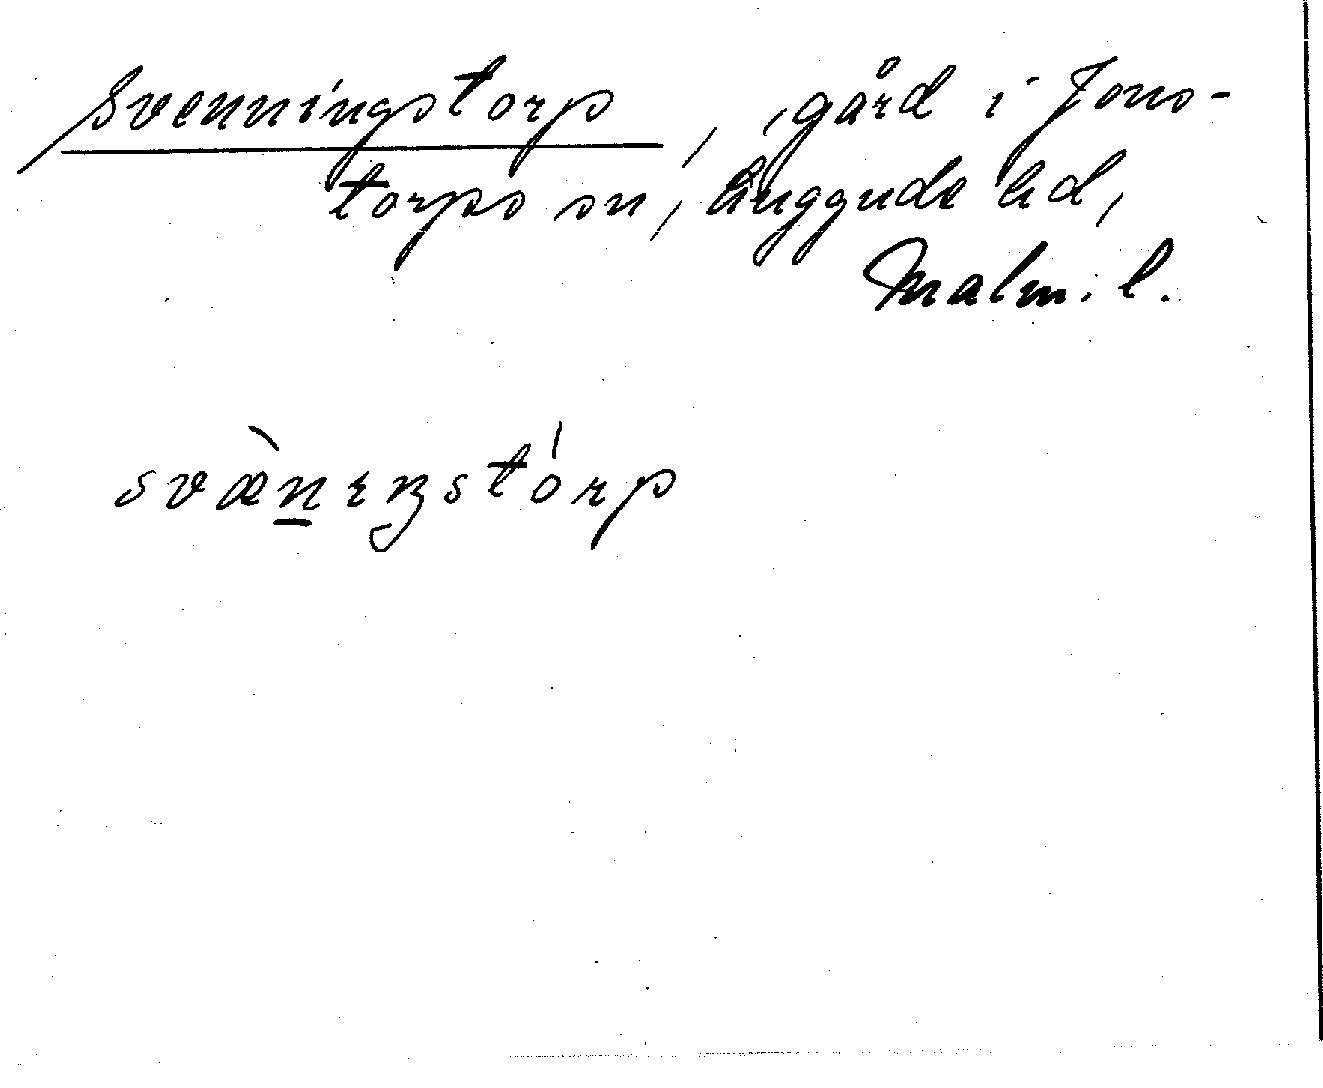 Svenningstorp, gård i Jons-
torps sn, Luggude hd,
Malm. l.
svæ̀n̲ıŋstórp